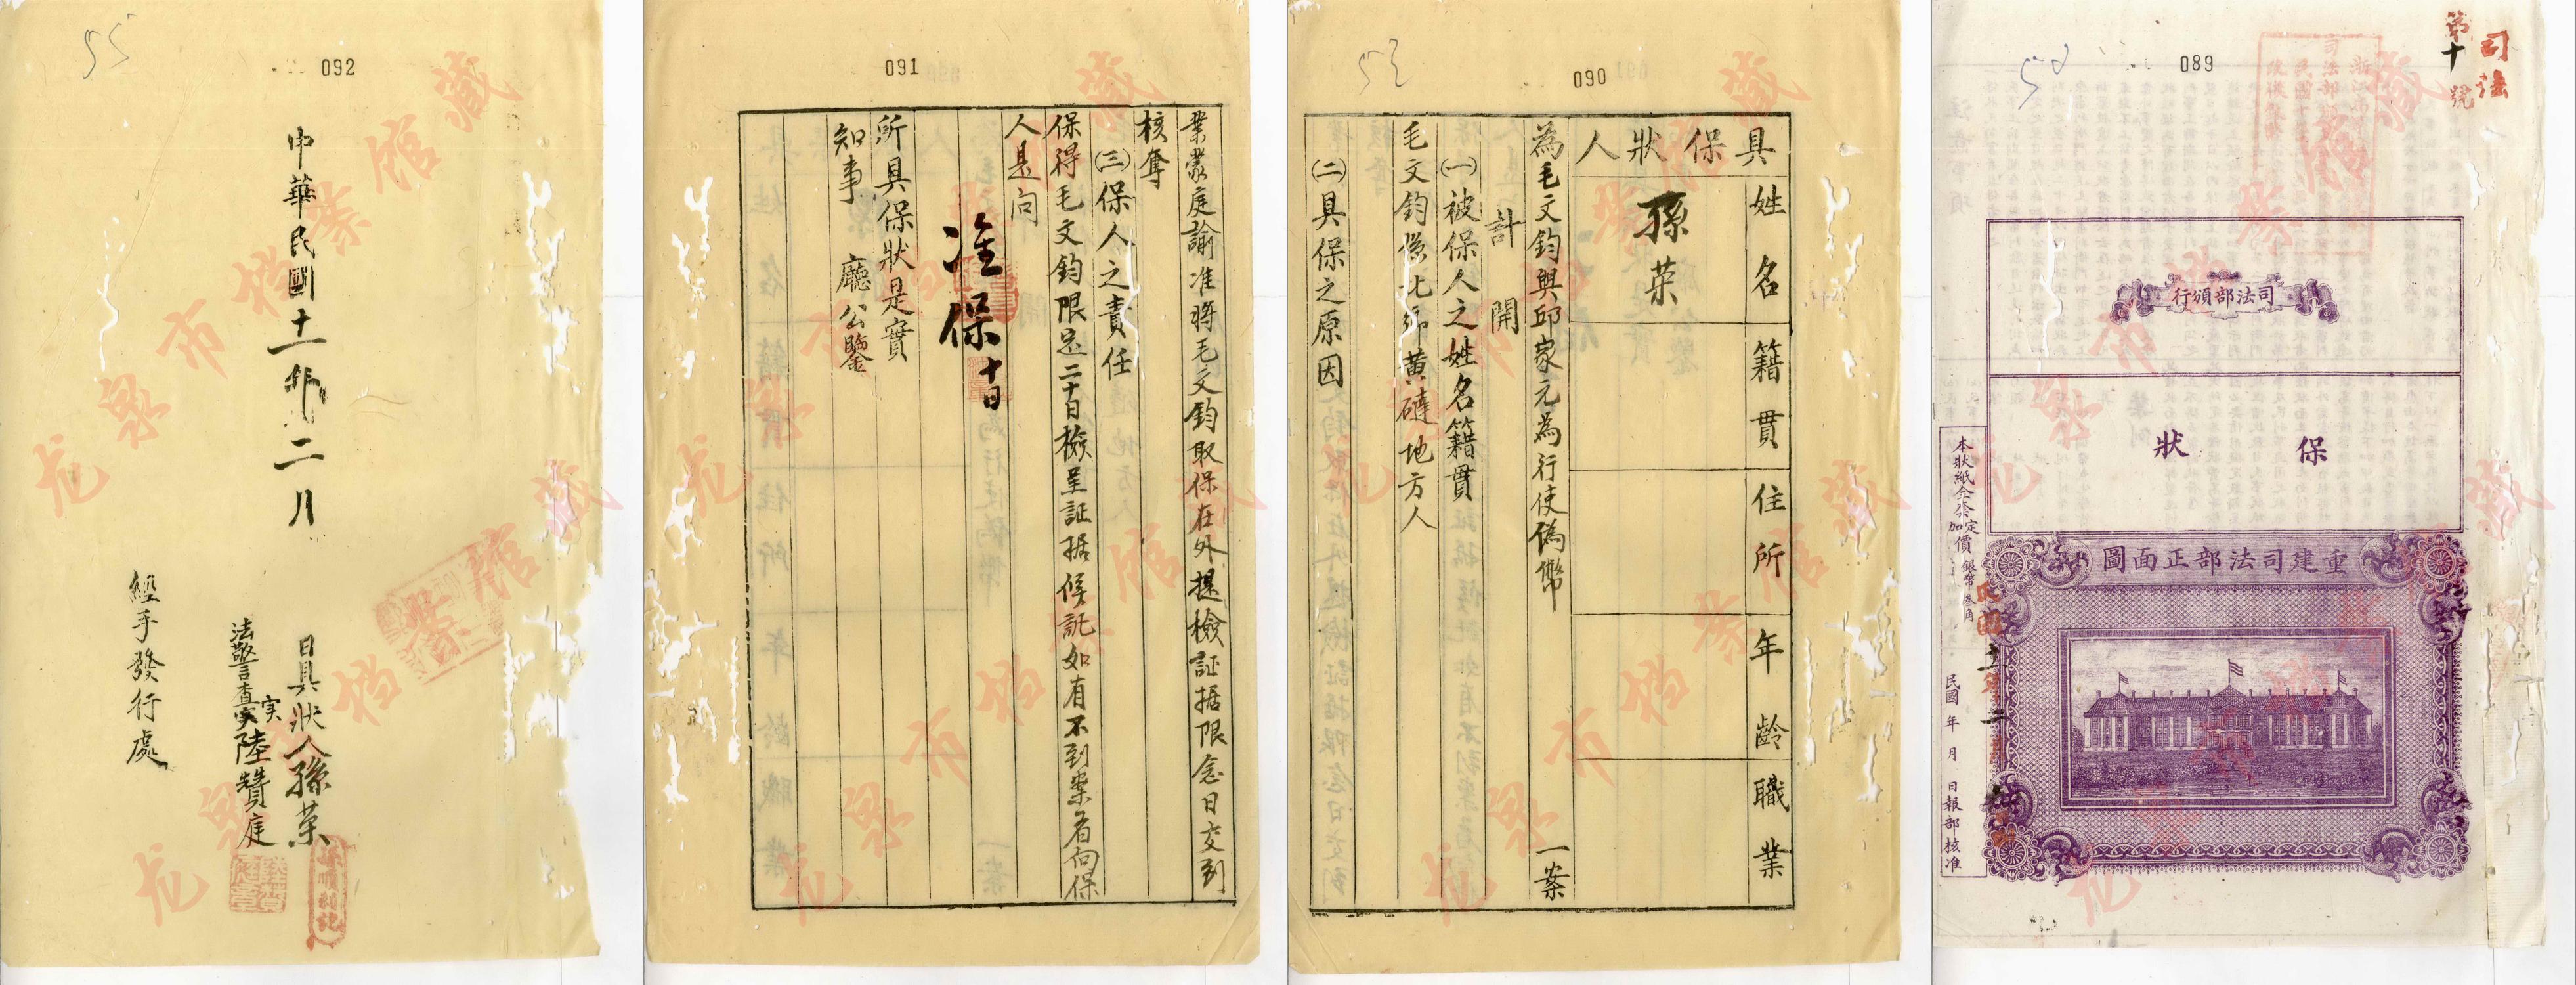 司法
第十號
089
司法部頒行
保狀
重建司法部正面圖
民國 年 月 日報部核准
090
具保狀人
姓名
籍貫
住所
年齡
職業
孫荣
為毛文鈞與邱家元為行使偽幣 一案
計開
㈠被保人之姓名籍貫
毛文鈞係北鄉黃礱地方人
㈡具保之原因
091
業蒙庭諭准將毛文鈞取保在外提檢証据限念日交到
核奪
㈢保人之責任
保得毛文鈞限足二十日檢呈証据候訊如有不到案者向保
人是问
准保十日
所具保狀是實
知事 廳公鑒
092
中華民國十一年二月
日具狀人孫荣
法警查實陸贊庭
实
經手發行處
龙泉市档案馆藏